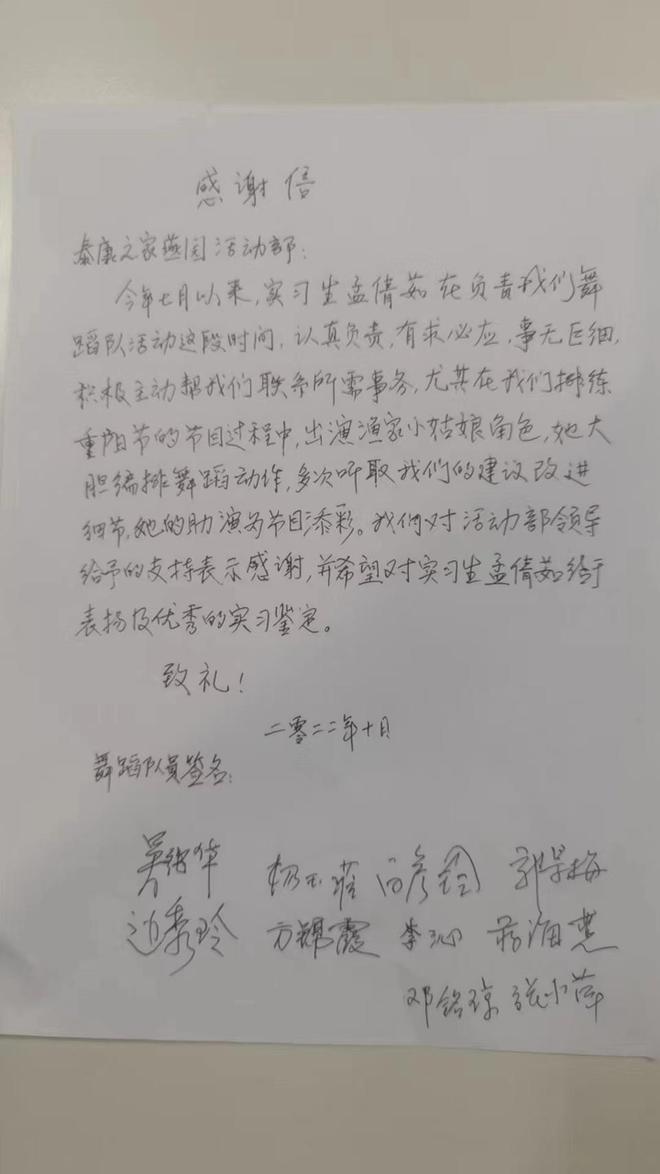 感谢信
泰康之家燕园活动部：
今年七月以来，实习生孟倩茹在负责我们舞
蹈队活动这段时间，认真负责，有求必应，事无巨细，
积极主动帮我们联系所需事务，尤其在我们排练
重阳节的节目过程中，出演渔家小姑娘角色，她大
胆编排舞蹈动作，多次听取我们的建议改进
细节，她的助演为节目添彩。我们对活动部领导
给予的支持表示感谢，并希望对实习生孟倩茹给予
表扬及优秀的实习鉴定。
致礼！
二零二二年十月
舞蹈队员签名：
方锦霞 李沁
邓铭琼 张小萍